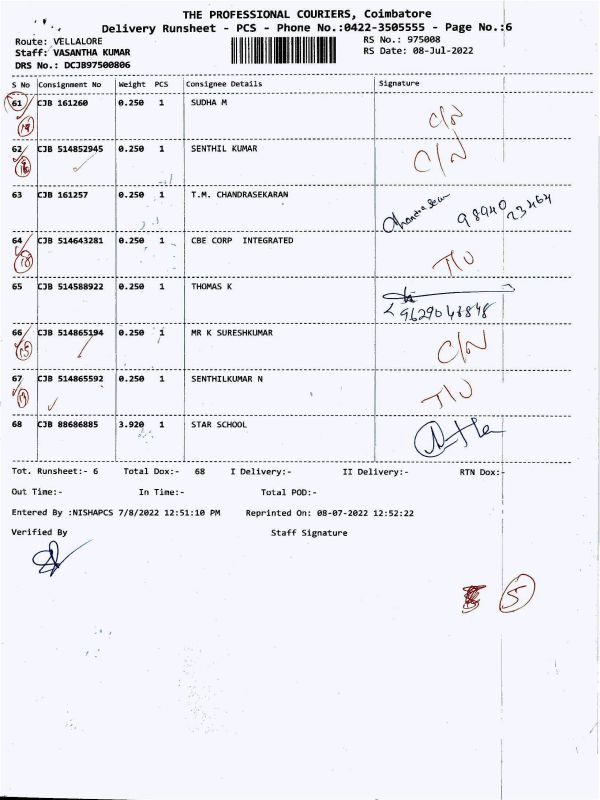 THE PROFESSIONAL COURIERS, Coimbatore
Delivery Runsheet - PCS - Phone No.:0422-3505555 - Page No.:6
Route: VELLALORE RS No.: 975008
Staff: VASANTHA KUMAR RS Date: 08-Jul-2022
DRS No.: DCJB97500806
S No Consignment No Weight PCS Consignee Details Signature
61 CJB 161260 0.250 1 SUDHA M
C/N
62 CJB 514852945 0.250 1 SENTHIL KUMAR C/N
63 CJB 161257 0.250 1 T.M. CHANDRASEKARAN
98940 23464
64 CJB 514643281 0.250 1 CBE CORP INTEGRATED
18 T/U
65 CJB 514588922 0.250 1 THOMAS K
9629048848
66 CJB 514865194 0.250 1 MR K SURESHKUMAR
15 C/N
67 CJB 514865592 0.250 1 SENTHILKUMAR N
T/U
68 CJB 88686885 3.920 1 STAR SCHOOL
Tot. Runsheet:- 6 Total Dox:- 68 I Delivery:- II Delivery:- RTN Dox:-
Out Time:- In Time:- Total POD:-
Entered By :NISHAPCS 7/8/2022 12:51:10 PM Reprinted On: 08-07-2022 12:52:22
Verified By Staff Signature
5